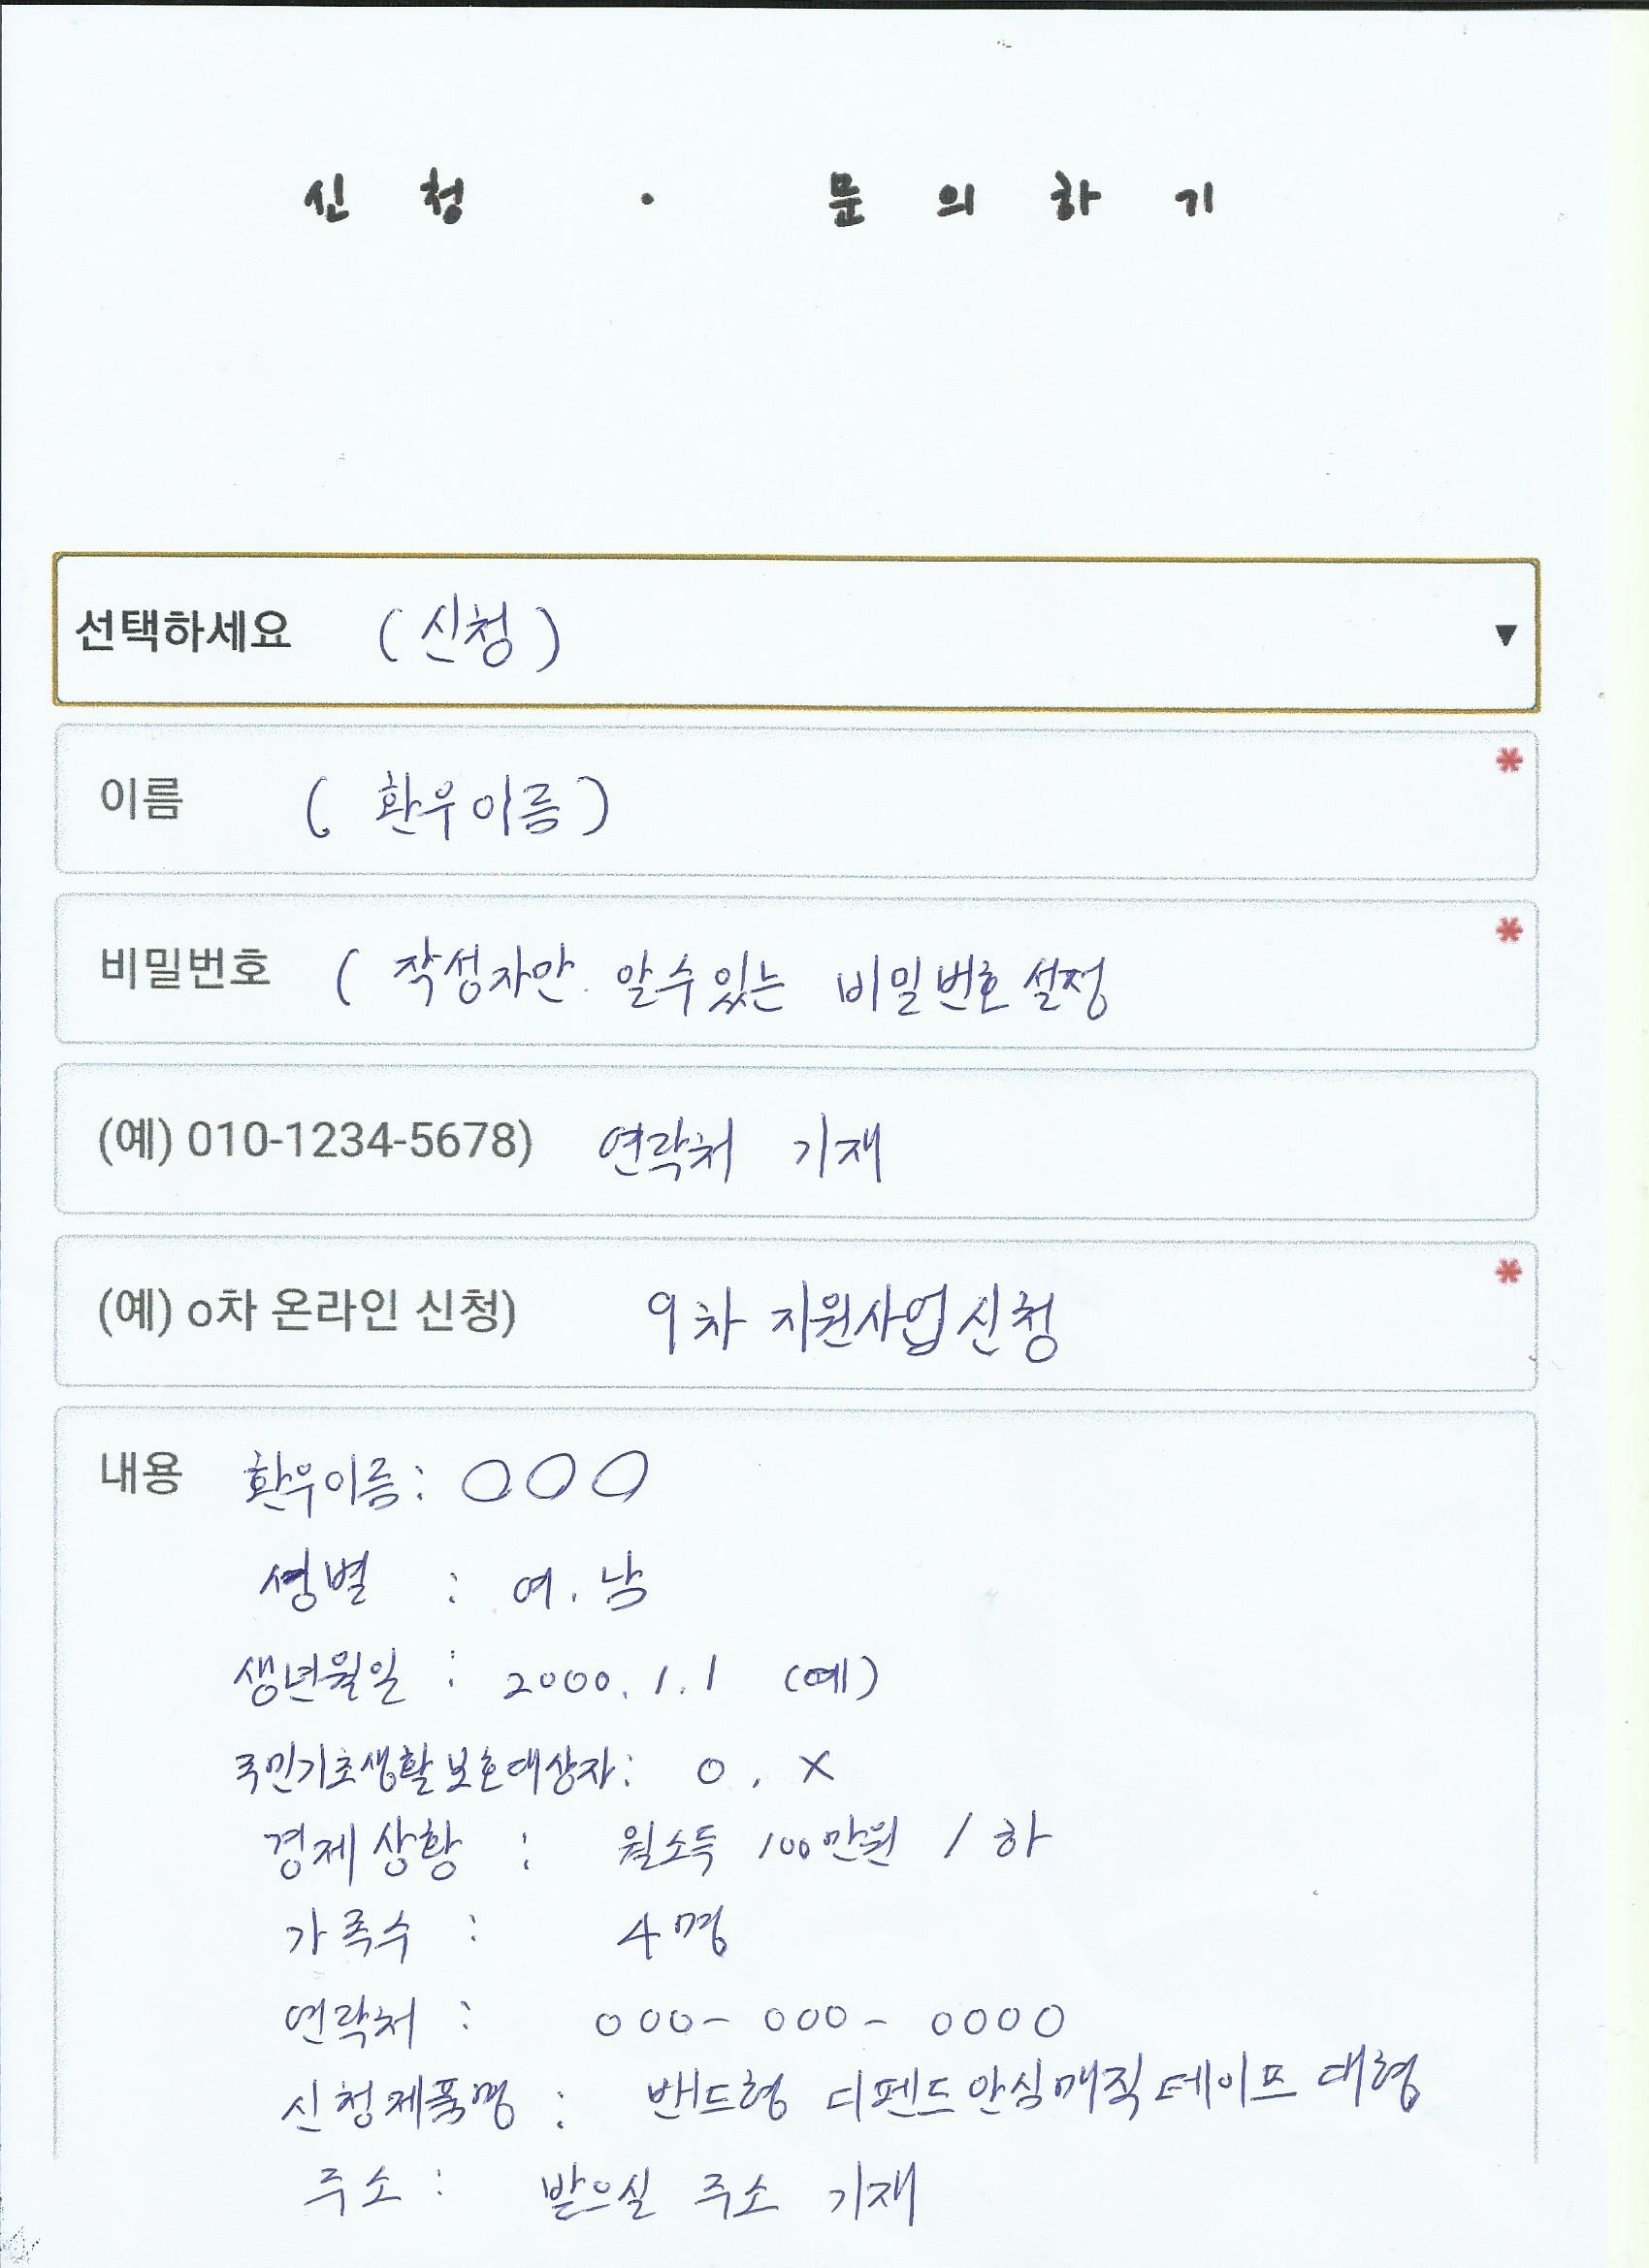 신 청 · 문 의 하 기
선택하세요 (신청) ▼
이름 ( 환우이름) *
비밀번호 ( 작성자만 알수있는 비밀번호 설정 *
(예) 010-1234-5678) 연락처 기재
(예) o차 온라인 신청) 9차 지원사업신청 *
내용 환우이름 : ○○○
성별 : 여. 남
생년월일 : 2000. 1. 1 (예)
국민기초생활보호대상자 : o , x
경제상황 : 월소득 100만원 / 하
가족수 : 4명
연락처 : 000- 000- 0000
신청제품명 : 밴드형 디펜드안심매직테이프 대형
주소 : 받으실 주소 기재